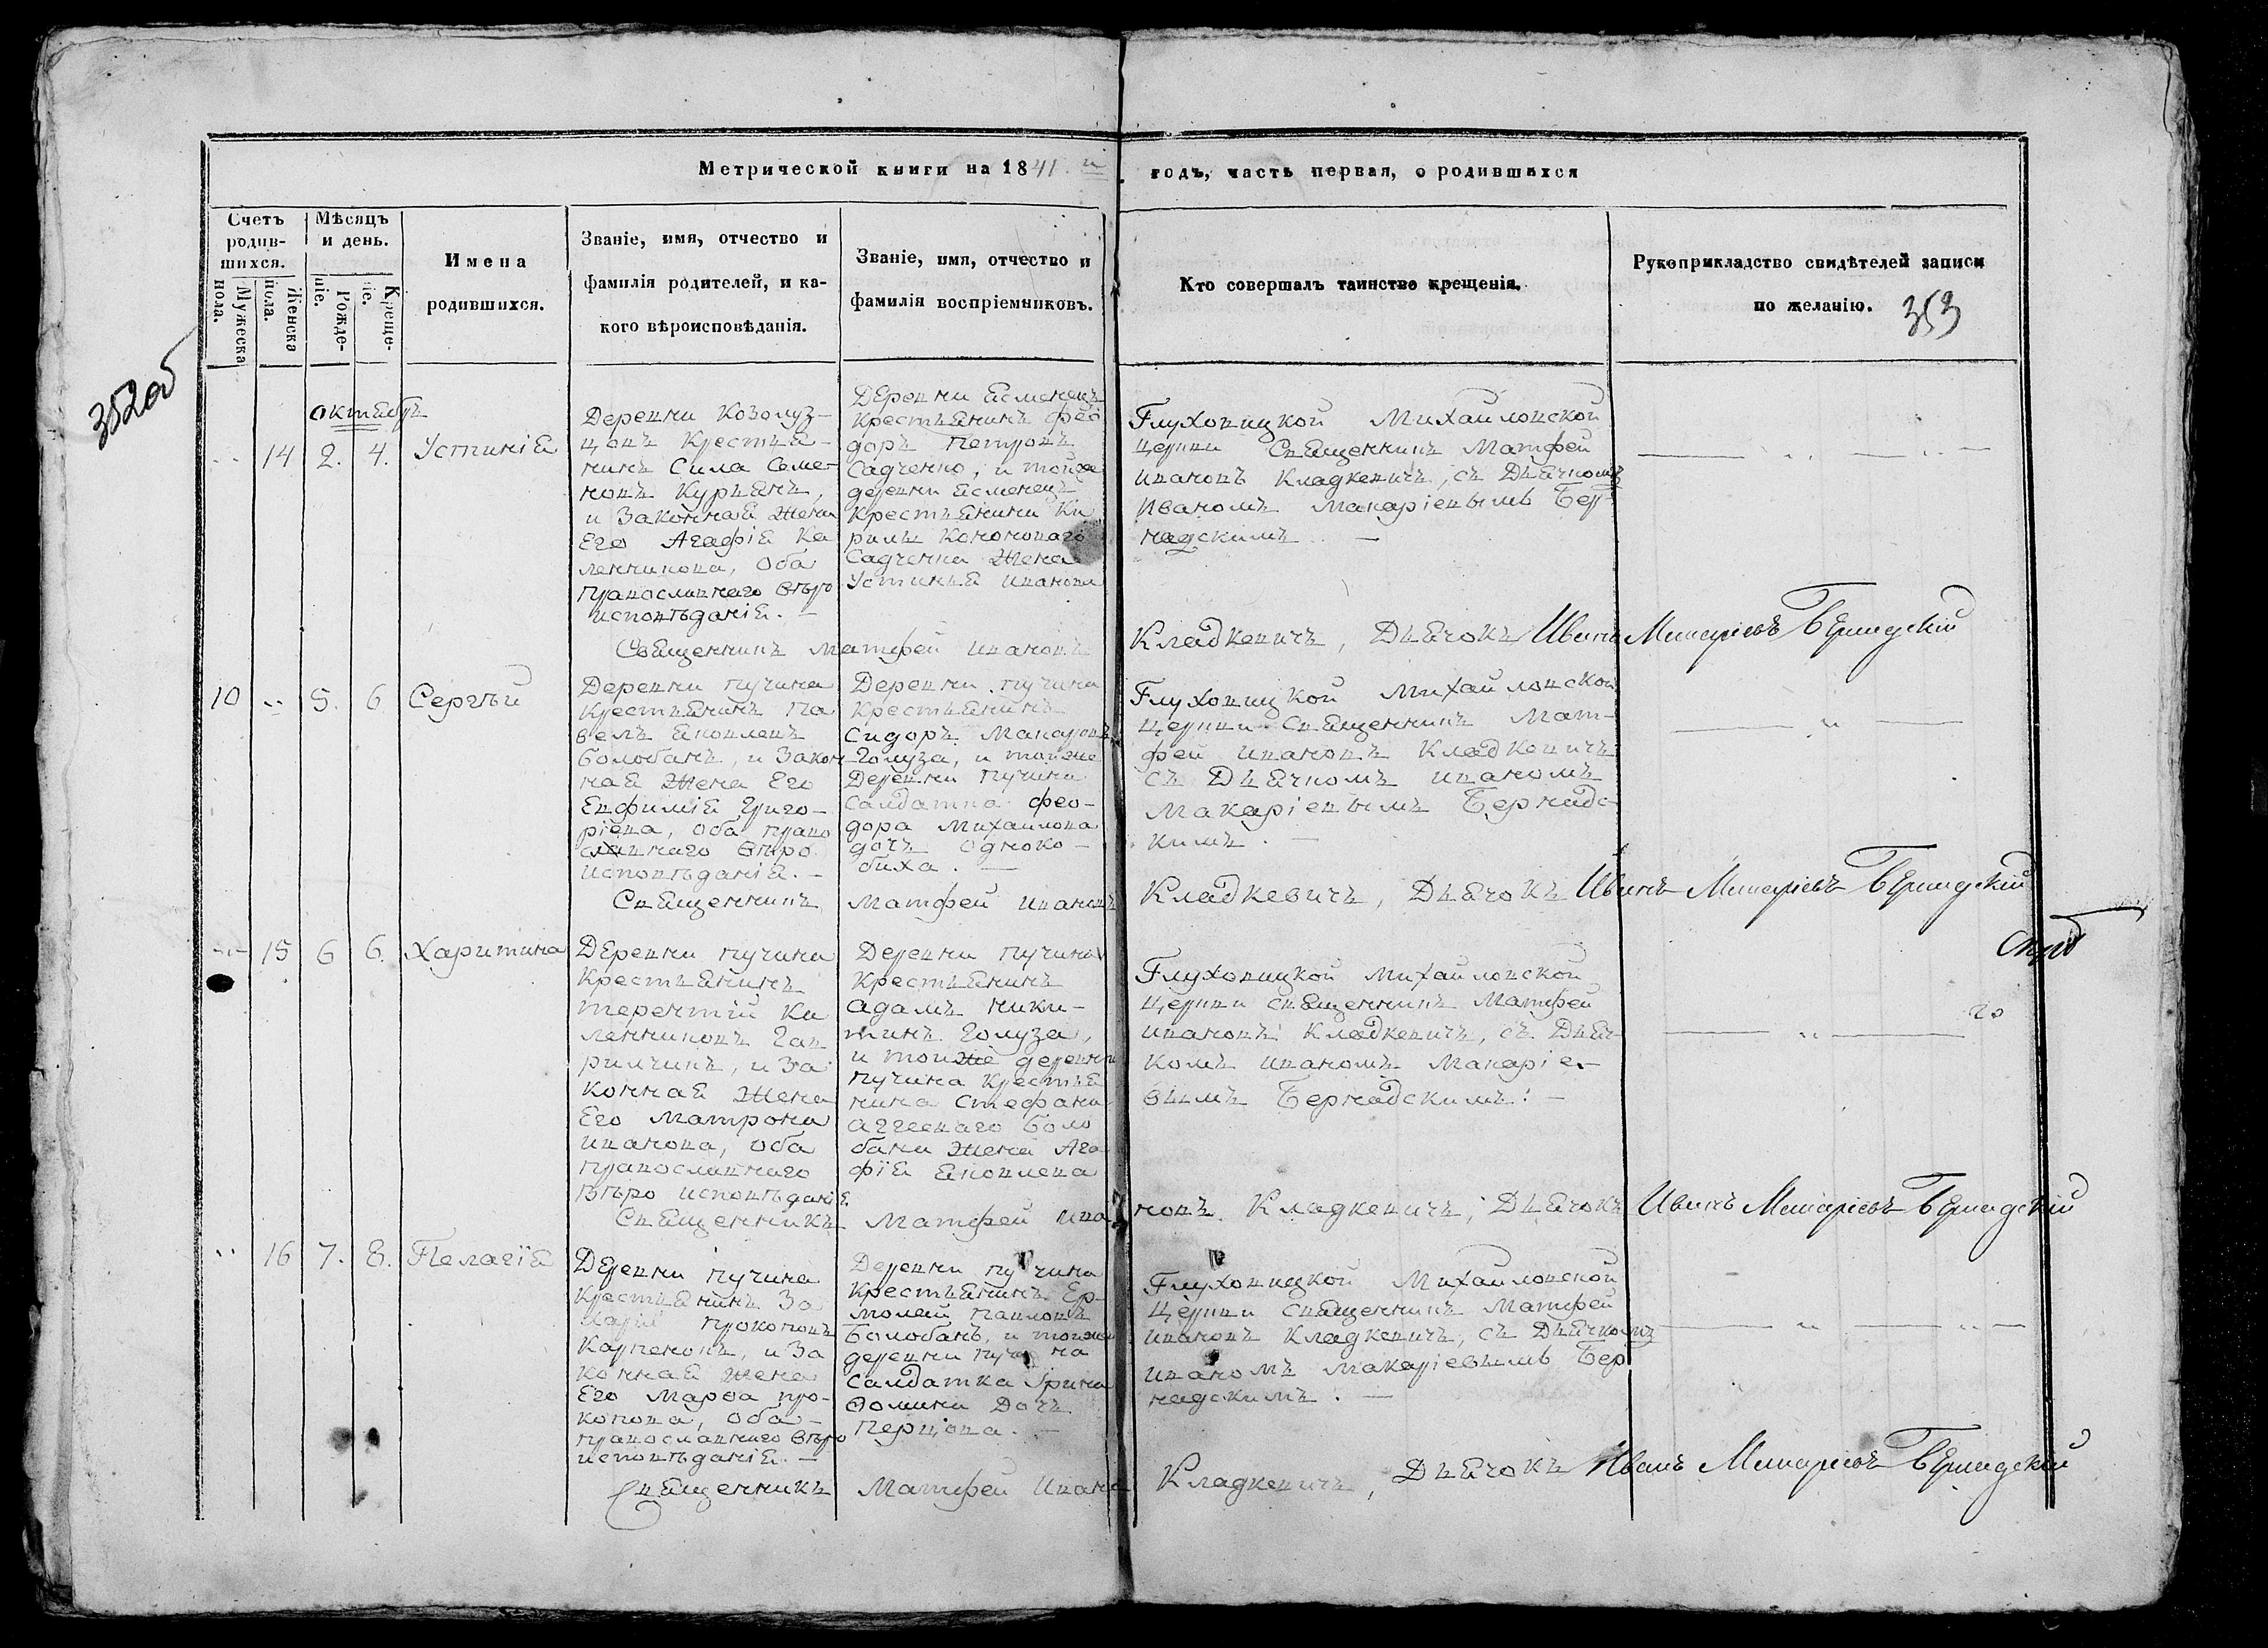 Метрической книги на 1841.й годъ, часть первая, о родившихся
Счетъ родив-
шихся.
Мужеска пола.
Женска пола.
Мѣсяцъ
и день.
Рожде-
ніе.
Креще-
ніе.
Имена
родившихся.
Званіе, имя, отчество и
фамилія родителей, и ка-
кого вѣроисповѣданія.
Званіе, имя, отчество и
фамилія воспріемниковъ.
Кто совершалъ таинство крещенія.
Рукоприкладство свидѣтелей записи
по желанію.
353
352об
октябрь
14 2. 4. Устинія
Деревни Козолуз-
цовъ Крестья-
нинъ Сила Семе-
новъ Курьянъ,
и Законная жена
Его Агафія Ка
ленникова, Оба
православнаго вѣро
исповѣданія. —
Деревни Ясменецъ
крестьянинъ Фео
доръ Петровъ
Садченко, и тойже
деревни Ясменецъ
Крестьянина Ки
рилы Кононоваго
Садченка Жена
Устинья Иванова
Глуховицкой Михайловской
церкви Священникъ Матфей
Ивановъ Кладкевичъ, съ Дьячкомъ
Иваномъ Макаріевымъ Бер-
надскимъ —
Священникъ Матфей Ивановъ Кладкевичъ, Дьячокъ Иванъ Макаріевъ Бернадскій
10 5. 6 Сергѣй
Деревни пучина
Крестьянинъ Па
велъ Яковлевъ
болобанъ, и Закон-
ная Жена Его
Евфимія Григо-
ріева, Оба право
славнаго вѣро
исповѣданія. —
Деревни пучина
Крестьянинъ
Сидоръ Макаровъ
Голуза, и тойже
Деревни пучина
Салдатка Фео-
дора Михайлова
дочъ Одноко-
биха. —
Глуховицкой Михайловской
церкви Священникъ Мат-
фей Ивановъ Кладкевичъ
съ Дьячкомъ Иваномъ
Макаріевымъ Бернадс-
кимъ. —
Священникъ Матфей Ивановъ Кладкевичъ, Дьячокъ Иванъ Макаріевъ Бернадскій
15 6 6. Харитина
Деревни пучина
Крестьянинъ
терентій Ка
ленниковъ Гав
рилчикъ, и За
конная Жена
Его Матрона
Иванова, Оба
православнаго
вѣро исповѣданія.
Деревни пучина
Крестьянинъ
адамъ Ники-
тинъ Голуза,
и тойже деревни
пучина Крестья
нина Стефана
аггеенаго Боло
бана жена Ага
фія Яковлева
Глуховицкой Михайловской
церкви священникъ Матфей
Ивановъ Кладкевичъ, съ Дьяч
комъ Иваномъ Макаріе-
вымъ Бернадскимъ: —
го
Священникъ Матфей Ивановъ Кладкевичъ, Дьячокъ Иванъ Макаріевъ Бернадскій
16 7. 8. Пелагія
Деревни пучина
Крестьянинъ За
харій прокоповъ
Карпеновъ, и За
конная жена
Его Марѳа про-
копова, Оба —
православнаго вѣро
исповѣданія. —
Деревни пучина
Крестьянинъ Ер-
молай Павловъ
Болобанъ, и тойже
деревни пучина
Салдатка Ірина
Ѳомина Дочъ
Перцова. —
Глуховицкой Михайловской
церкви священникъ Матфей
Ивановъ Кладкевичъ, съ Дьячкомъ
Иваномъ Макаріевымъ Бер
надскимъ. —
Священникъ Матфей Ивановъ Кладкевичъ, Дьячокъ Иванъ Макаріевъ Бернадскій